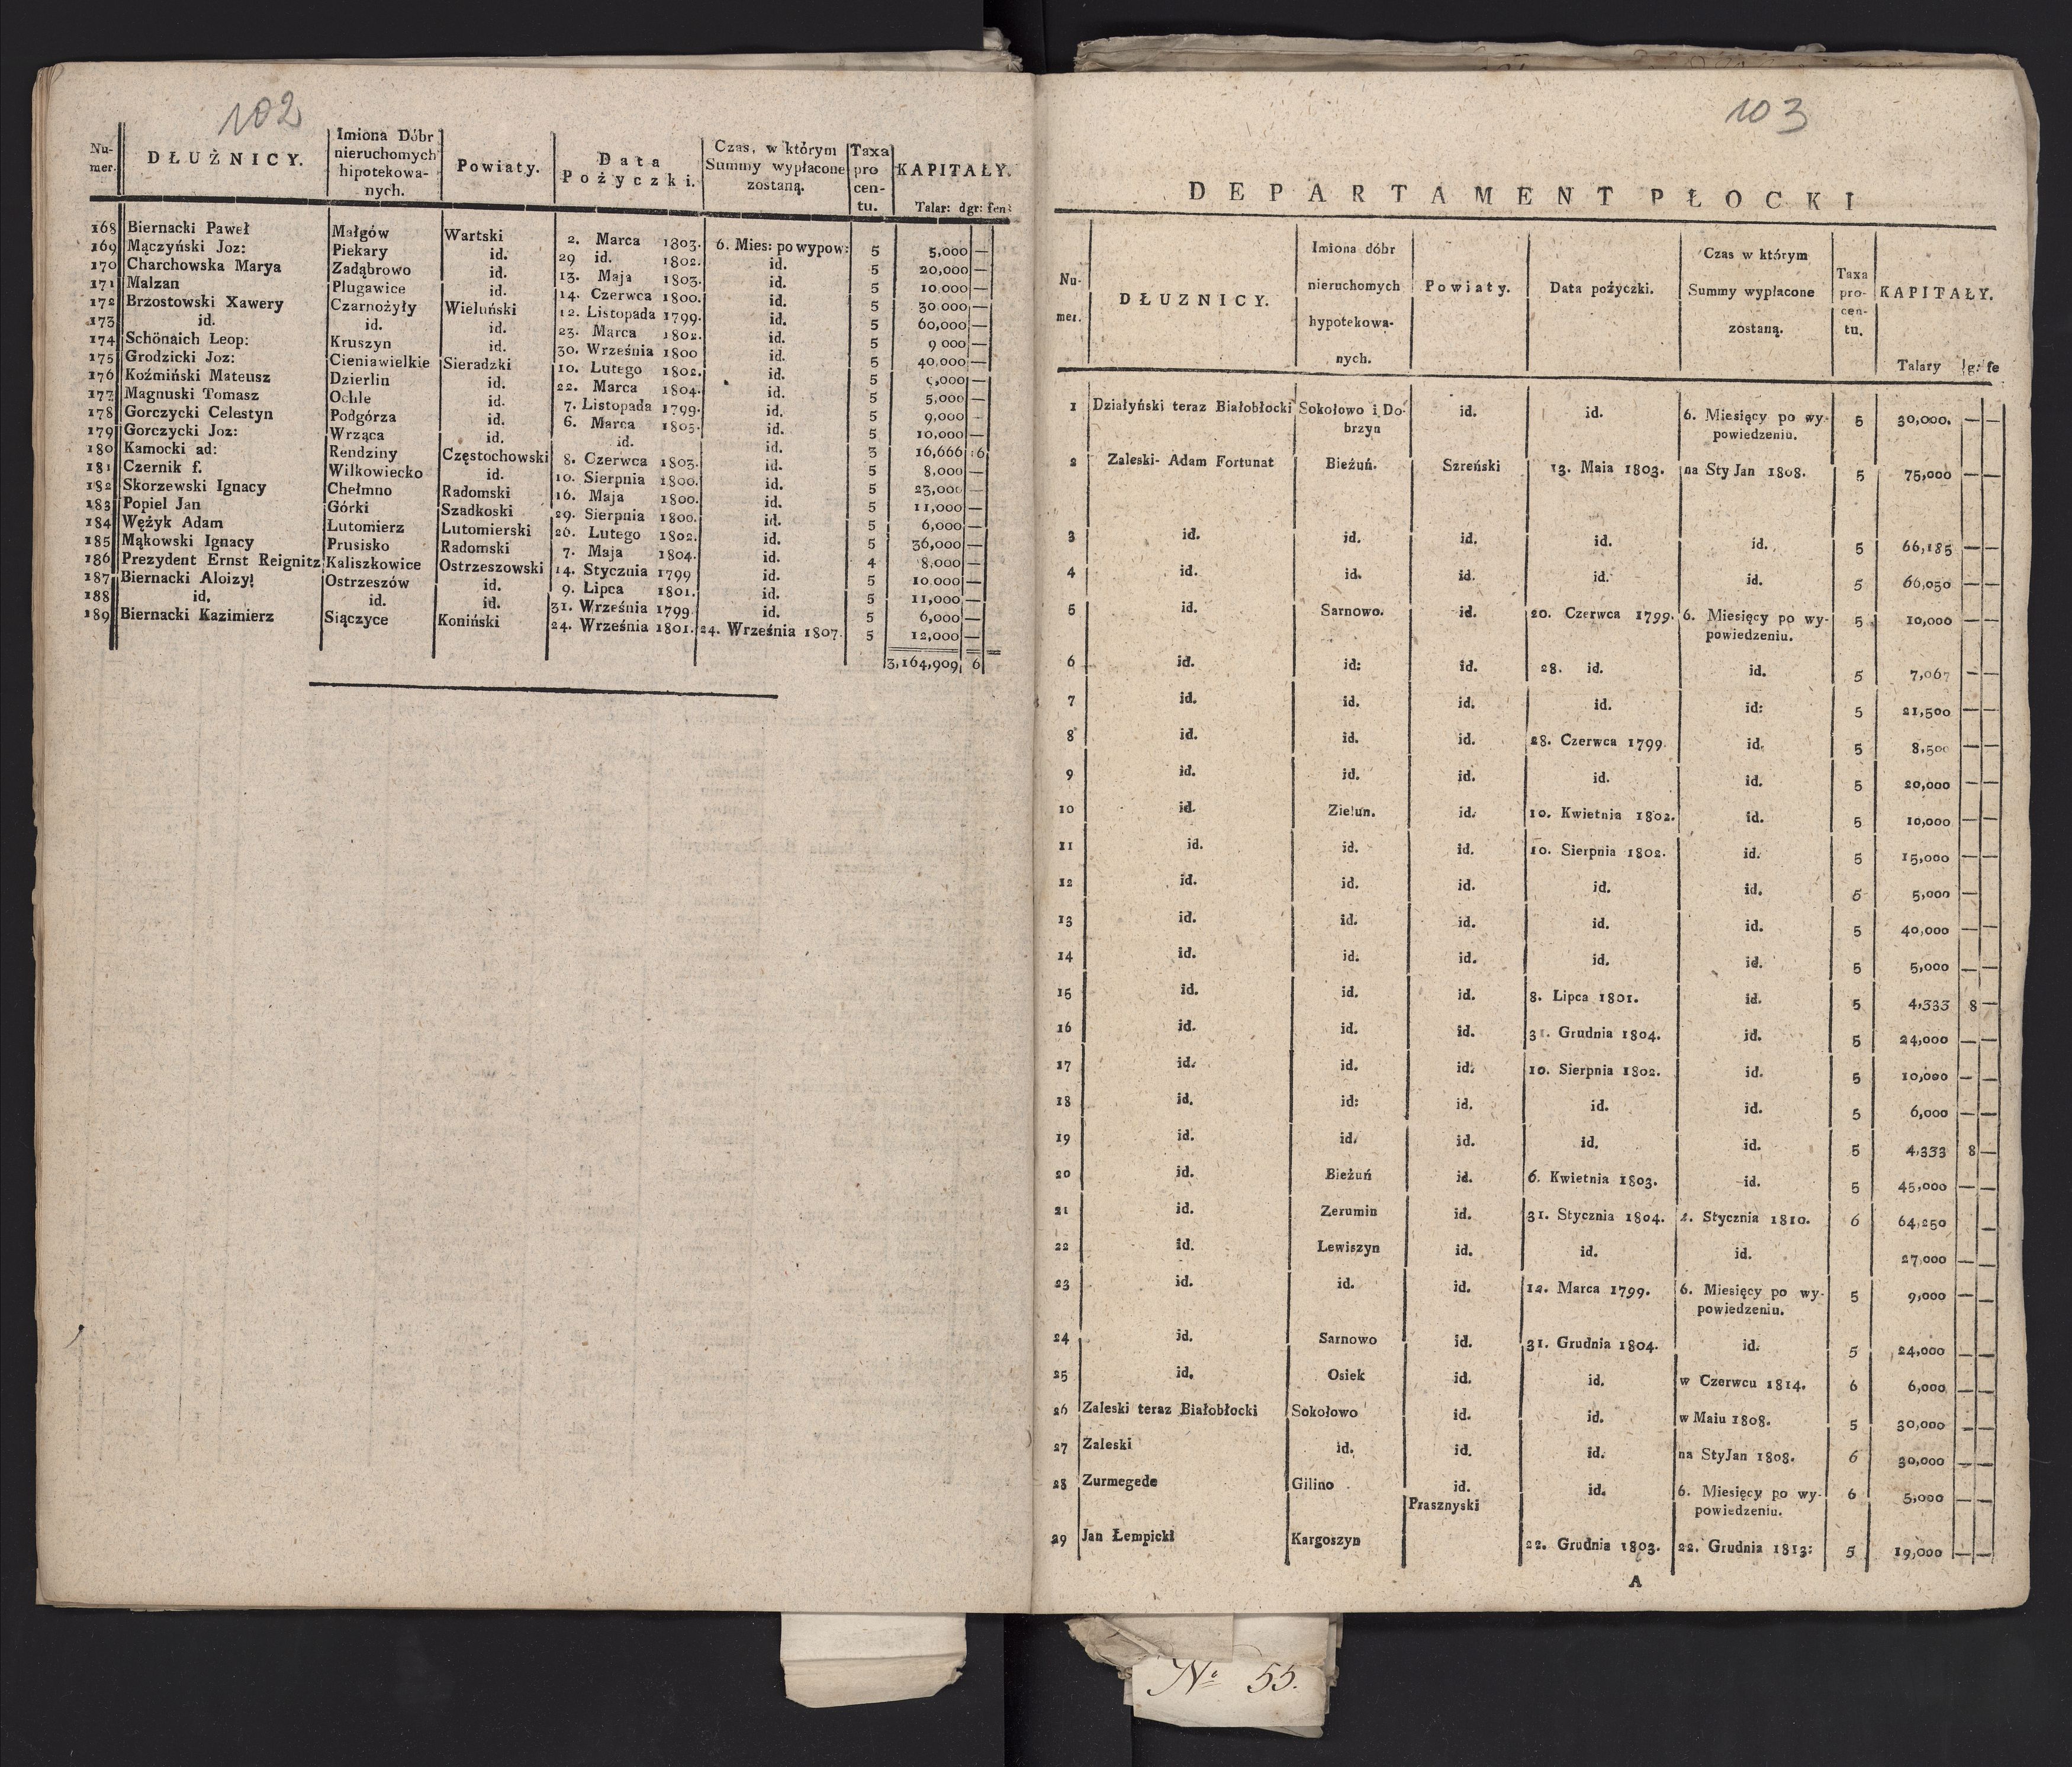 102
Nu-mer. DŁUŻNICY. Imiona Dóbr nieruchomych hipotekowa-nych. Powiaty. Data Pożyczki. Czas, w którym Summy wypłacone zostaną. Taxa pro cen-tu. KAPITAŁY.
Talar: dgr: fen:
168 Biernacki Paweł Małgów Wartski 2. Marca 1803. 6. Mies: po wypow: 5 5,000 —
169 Mączyński Joz: Piekary id. 29 id. 1802. id. 5 20,000 —
170 Charchowska Marya Zadąbrowo id. 13. Maja 1803. id. 5 10 000 —
171 Malzan Plugawice id. 14. Czerwca 1800. id. 5 30 000 —
172 Brzostowski Xawery Czarnożyły Wieluński 12. Listopada 1799. id. 5 60,000 —
173 id. id. id. 23. Marca 1802. id. 5 9 000 —
174 Schönaich Leop: Kruszyn id. 30. Września 1800 id. 5 40,000 —
175 Grodzicki Joz: Cieniawielkie Sieradzki 10. Lutego 1802. id. 5 ,000 —
176 Koźmiński Mateusz Dzierlin id. 22. Marca 1804. id. 5 5,000 —
177 Magnuski Tomasz Ochle id. 7. Listopada 1799. id. 5 9,000 —
178 Gorczycki Celestyn Podgórza id. 6. Marca 1805. id. 5 10,000 —
179 Gorczycki Joz: Wrząca id. id. id. 3 16,666 :6
180 Kamocki ad: Rendziny Częstochowski 8. Czerwca 1803. id. 5 8,000 —
181 Czernik f. Wilkowiecko id. 10. Sierpnia 1800. id. 5 23,000 —
182 Skorzewski Ignacy Chełmno Radomski 16. Maja 1800. id. 5 11,000 —
183 Popiel Jan Górki Szadkoski 29. Sierpnia 1800. id. 5 6,000 —
184 Wężyk Adam Lutomierz Lutomierski 26. Lutego 1802. id. 5 36,000 —
185 Mąkowski Ignacy Prusisko Radomski 7. Maja 1804. id. 4 8,000 —
186 Prezydent Ernst Reignitz Kaliszkowice Ostrzeszowski 14. Stycznia 1799 id. 5 10,000 —
187 Biernacki Aloizy! Ostrzeszów id. 9. Lipca 1801. id. 5 11,000 —
188 id. id. id. 31. Września 1799. id. 5 6,000 —
189 Biernacki Kazimierz Siączyce Koniński 24. Września 1801. 24. Września 1807. 5 12,000 —
3,164,909 6
103
DEPARTAMENT PŁOCKI
Nu-mer. DŁUZNICY. Imiona dóbr nieruchomych hypotekowa-nych. Powiaty. Data pożyczki. Czas w którym Summy wypłacone zostaną. Taxa pro-cen-tu. KAPITAŁY.
Talary g: fe
1 Działyński teraz Białobłocki Sokołowo i Do-brzyn id. id. 6. Miesięcy po wy-powiedzeniu. 5 30,000. — —
2 Zaleski- Adam Fortunat Bieżuń. Szreński 13. Maia 1803. na Sty Jan 1808. 5 75,000 — —
3 id. id. id. id. id. 5 66,185 — —
4 id. id. id. id. id. 5 66,050 — —
5 id. Sarnowo. id. 20. Czerwca 1799. 6. Miesięcy po wy-powiedzeniu. 5 10,000 — —
6 id. id: id. 28. id. id. 5 7,067 — —
7 id. id. id. id. id: 5 21,500 — —
8 id. id. id. 28. Czerwca 1799. id. 5 8,500 — —
9 id. id. id. id. id. 5 20,000 — —
10 id. Zielun. id. 10. Kwietnia 1802. id. 5 10,000 — —
11 id. id. id. 10. Sierpnia 1802. id. 5 15,000 — —
12 id. id. id. id. id. 5 5,000 — —
13 id. id. id. id. id. 5 40,000 — —
14 id. id. id. id. id. 5 5,000 — —
15 id. id. id. 8. Lipca 1801. id. 5 4,333 8 —
16 id. id. id. 31. Grudnia 1804. id. 5 24,000 — —
17 id. id. id. 10. Sierpnia 1802. id. 5 10,000 — —
18 id. id: id. id. id. 5 6,000 — —
19 id. id. id. id. id. 5 4,333 8 —
20 id. Bieżuń id. 6. Kwietnia 1803. id. 5 45,000 — —
21 id. Zerumin id. 31. Stycznia 1804. 2. Stycznia 1810. 6 64,250 —
22 id. Lewiszyn id. id. id. 27,000 — —
23 id. id. id. 12. Marca 1799. 6. Miesięcy po wy-powiedzeniu. 5 9,000 — —
24 id. Sarnowo id. 31. Grudnia 1804. id. 5 24,000 — —
25 id. Osiek id. id. w Czerwcu 1814. 6 6,000 — —
26 Zaleski teraz Białobłocki Sokołowo id. id. w Maiu 1808. 5 30,000 — —
27 Zaleski id. id. id. na StyJan 1808. 6 30,000 — —
28 Zurmegede Gilino id. id. 6. Miesięcy po wy-powiedzeniu. 6 5,000 — —
Prasznyski
29 Jan Łempicki Kargoszyn 22. Grudnia 1803. 22. Grudnia 1813: 5 19,000 — —
A
No 55.